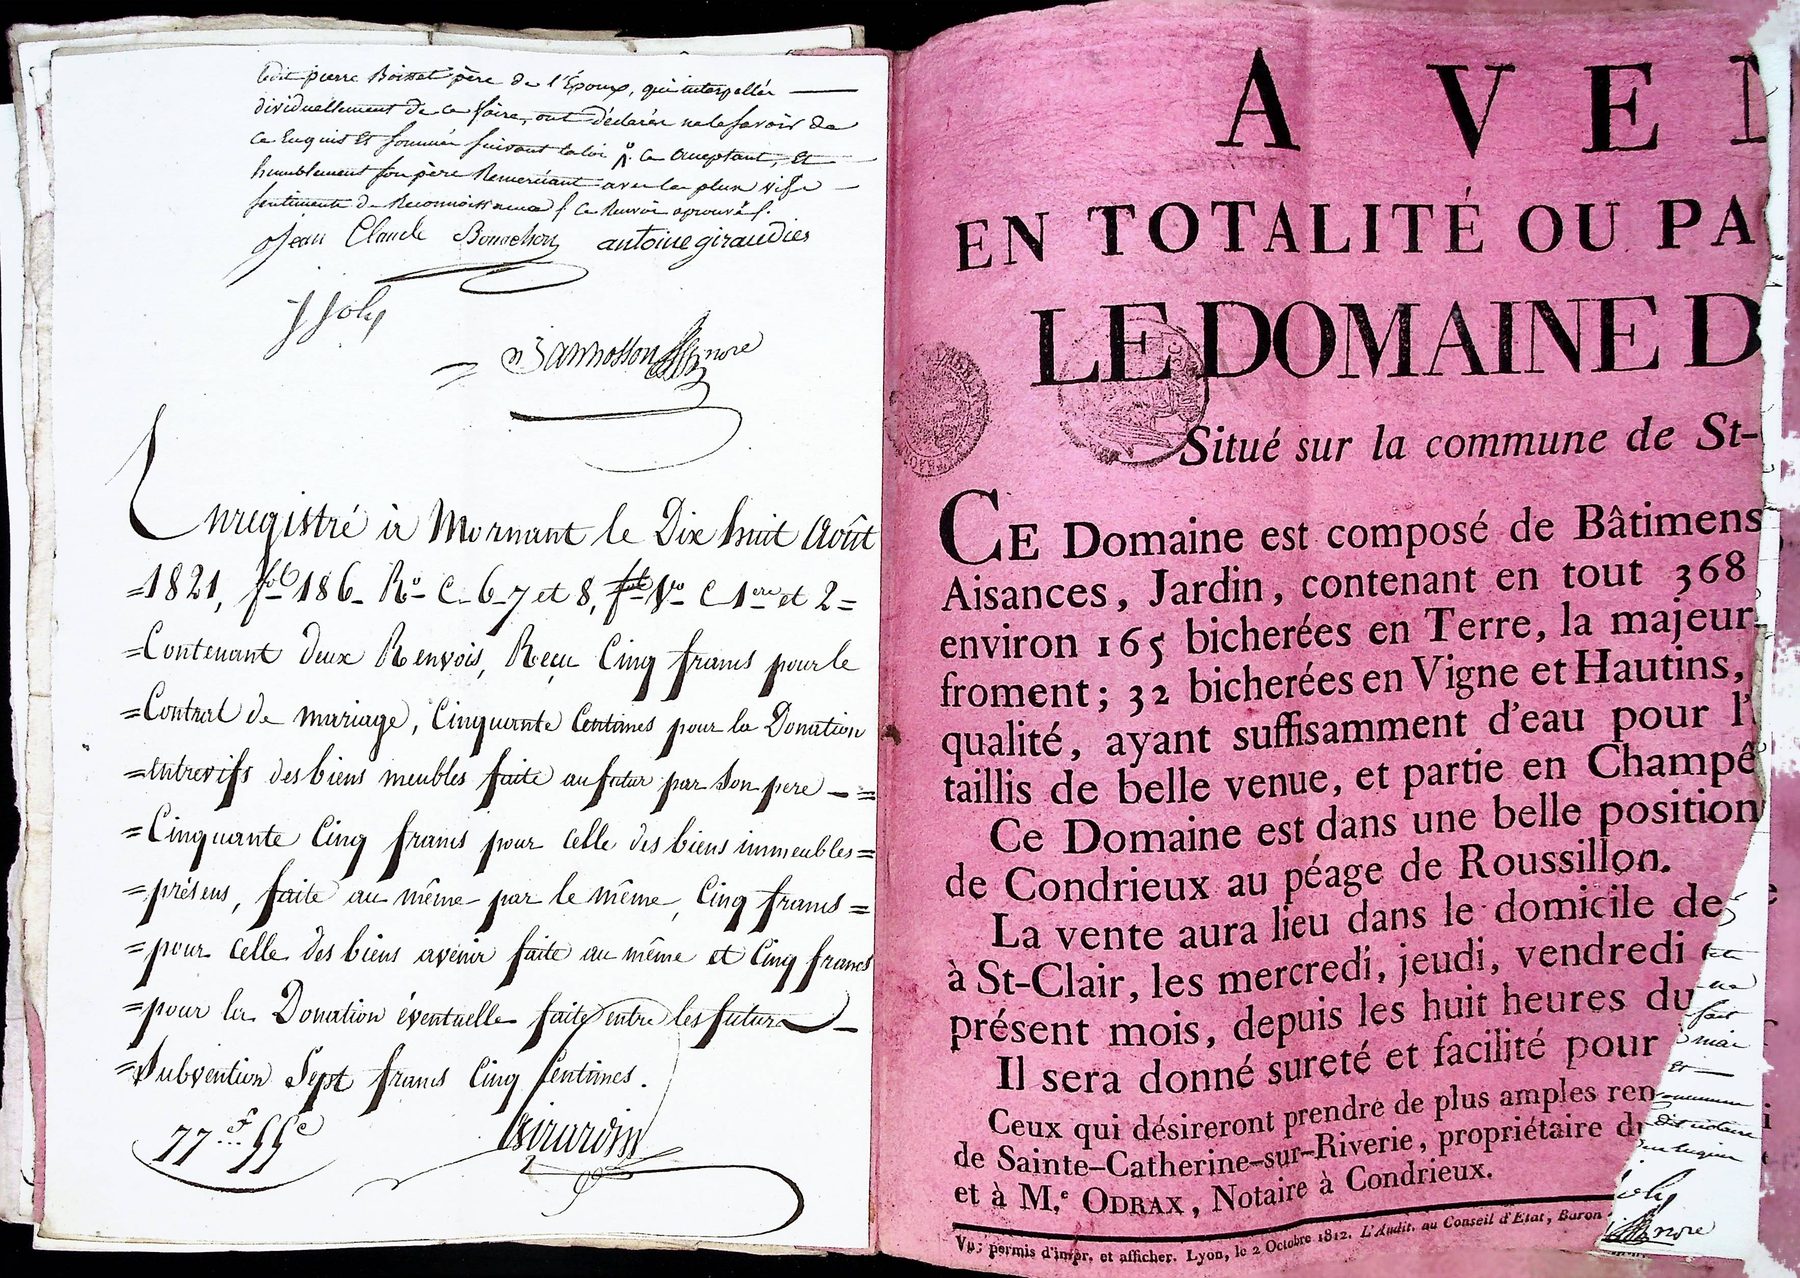 Ledit pierre Boissat père de l'Époux, qui interpellés
dividuellement de ce faire, ont déclarés ne le savoir de
ce Enquis Et sommés suivant la loi ce acceptant, Et
humblement son père Remerciant avec les plus vifs
sentiments de Reconnoissance / ce Renvoi aprouvés /.
Jean Claude Bonnechon antoine giraudies
J Joly
=
Enregistré à Mornant le Dix huit Août
=1821, fol 186 Ro C 6-7 et 8, Vo C 1ere et 2=
=Contenant deux Renvois, Reçu Cinq francs pour le
=Contrat de mariage, Cinquante Centimes pour la Donation
=entrevifs des biens meubles faite au futur par son pere - =
=Cinquante Cinq francs pour celle des biens immeubles=
=présens, faite au même par le même, Cinq francs=
=pour celle des biens avenir faite au même et Cinq francs
=pour la Donation éventuelle faite entre les futurs -
=Subvention Sept francs Cinq Centimes.
77 f 55 c
Girardin
A VEN
EN TOTALITÉ OU PA
LE DOMAINE D
Situé sur la commune de St-
CE Domaine est composé de Bâtimens
Aisances, Jardin, contenant en tout 368
environ 165 bicherées en Terre, la majeur
froment; 32 bicherées en Vigne et Hautins,
qualité, ayant suffisamment d'eau pour l'
taillis de belle venue, et partie en Champê
Ce Domaine est dans une belle position
de Condrieux au péage de Roussillon.
La vente aura lieu dans le domicile de
à St-Clair, les mercredi, jeudi, vendredi
présent mois, depuis les huit heures du
Il sera donné sureté et facilité pour
Ceux qui désireront prendre de plus amples ren
de Sainte-Catherine-sur-Riverie, propriétaire d
et à M.e ODRAX, Notaire à Condrieux.
Vu; permis d'impr. et afficher. Lyon, le 2 Octobre 1812. L'Audit. au Conseil d'Etat, Baron